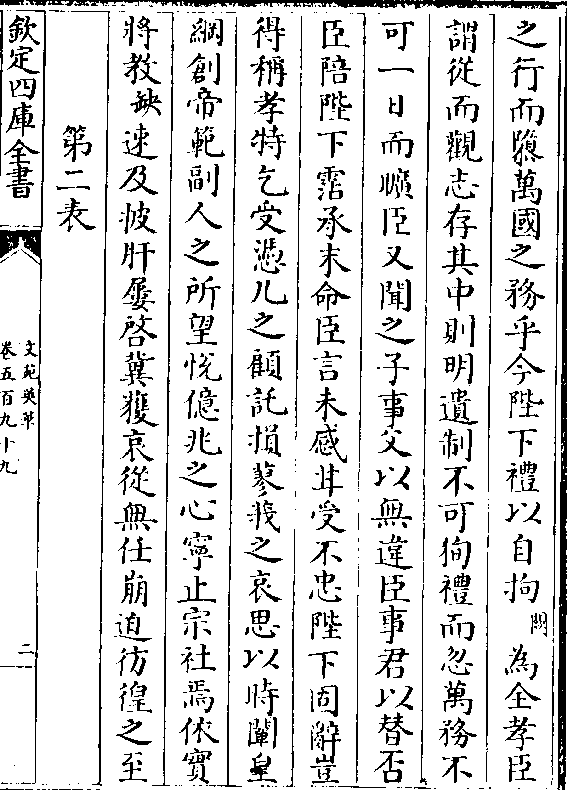 之行而隳萬國之務乎今陛下禮以自拘闕為全孝臣
謂從而觀志存其中則明遺制不可徇禮而忽萬務不
可一日而曠臣又聞之子事父以無違臣事君以替否
臣陪陛下霑承末命臣言未感甘受不忠陛下固辭豈
得稱孝特乞受憑几之顧託損蓼莪之哀思以時闡皇
綱創帝範副人之所望悦億兆之心寧止宗社焉依實
將教缺速及披肝屢啓冀獲哀從無任崩迫彷徨之至
第二表
欽定四庫全書
文苑英華
卷五百九十九
二